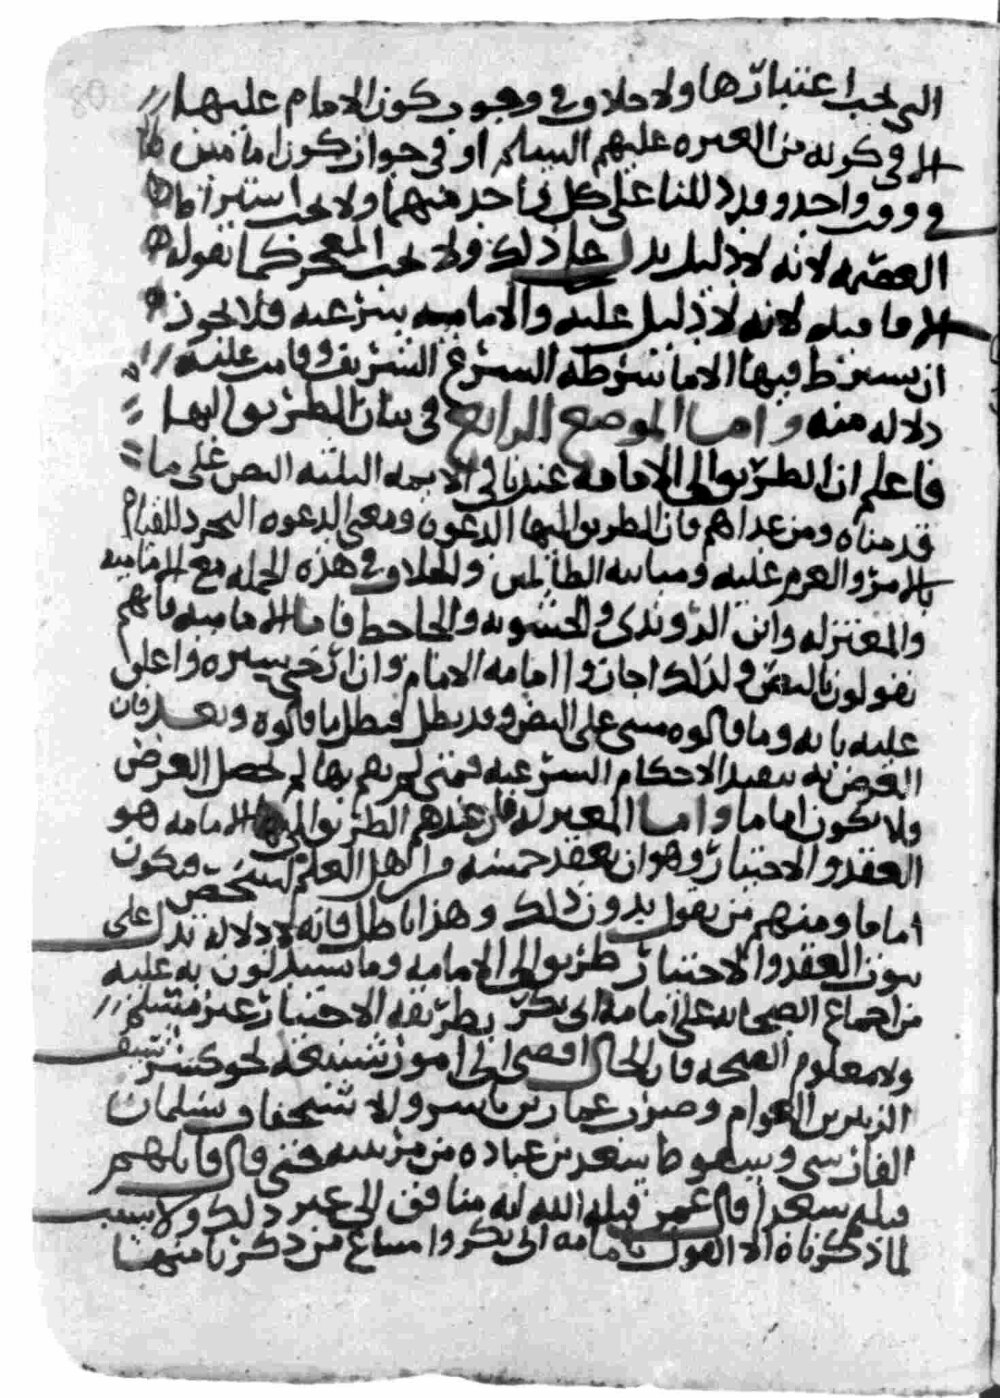 التي يجب اعتبارها ولا خلاف في وجوب كون الامام عليها
الا في كونه من العتره عليهم السلم او في جواز كون امامين
في وقت واحد وقد دللنا على كل واحد منهما ولا يجب اشتراط
العصمه لانه لا دليل يدل على ذلك ولا يجب المعجز كما تقوله
الاماميه لانه لا دليل عليه والامامه شرعيه فلا يجوز
ان يشترط فيها الا ما شرطه الشرع الشريف وقامت عليه
دلاله منه واما الموضع الرابع في بيان الطريق اليها
فاعلم ان الطريق الى الامامه عندنا في الايمه الثلثه النص على ما
قدمناه ومن عداهم فان الطريق اليها الدعوه ومعنى الدعوه التجرد للقيام
بالامر والعزم عليه ومباينه الظالمين والخلاف في هذه الجمله مع الاماميه
والمعتزله وابن الروندي والحشويه والجاحظ فاما الاماميه فانهم
يقولون بالنص ولذلك اجازوا امامه الامام وان ارخى ستره واغلق
عليه بابه وما قالوه مبني على النص وقد بطل فبطل ما قالوه وبعد فان
الغرض به تنفيذ الاحكام الشرعيه فمتى لم يقم بها لم يحصل الغرض
ولا يكون اماما واما المعتزله فان عندهم الطريق الى الامامه هو
العقد والاختيار وهو ان يعقد خمسه من اهل العلم لشخص فيكون
اماما ومنهم من يقول بدون ذلك وهذا باطل فانه لا دلاله تدل على
كون العقد والاختيار طريق الى الامامه وما يستدلون به عليه
من اجماع الصحابه على امامه ابي بكر بطريقه الاختيار غير مسلم
ولا معلوم الصحه فان الحال افضى الى امور شنيعه نحو كسر سيف
الزبير بن العوام وضرب عمار بن ياسر والاستخفاف بسلمان
الفارسي وسقوط سعد بن عباده من مرتبته حتى قال قايلهم
قتلتم سعدا قال عمر قتله الله انه منافق الى غير ذلك ولا سبب
لما ذكرناه الا القول بامامه ابي بكر وامتناع من ذكرنا منها